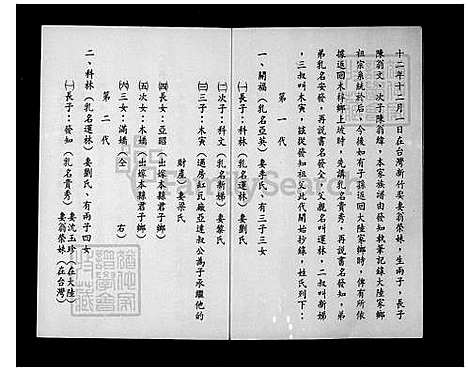 十二年十二月一日在台灣新竹娶妻翁榮妹,生兩子,長子
陳翁文、次子陳翁煒,本家族譜由發知執筆記錄大陸家鄉
祖宗系統於后,今後如有子孫返回大陸家鄉時,俾有所依
據返回木梓鄉上坡時,先講乳名貴秀,再說書名發知,弟
弟乳名安發,再說書名發全,父親名叫運林,二叔叫新娣
,三叔叫木寅,茲從發知祖父此代開始抄錄,姓氏列下:
第一代
一、開福(乳名亞英)妻李氏、有三子三女
㈠長子:科林(乳名運林)妻劉氏
㈡次子:科文(乳名新娣)妻黎氏
㈢三子:木寅(過房缸瓦廠亞達叔公為子承繼他的
財產)妻梁氏
㈣長女:亞昭(出嫁本縣君子鄉)
㈤次女:木嬌(出嫁本縣君子鄉)
㈥三女:滿嬌(仝 右)
第二代
二、科林(乳名運林)妻劉氏、有兩子四女
㈠長子:發知(乳名貴秀)妻沈玉珍(在大陸)
妻翁榮妹(在台灣)
FamilySearch